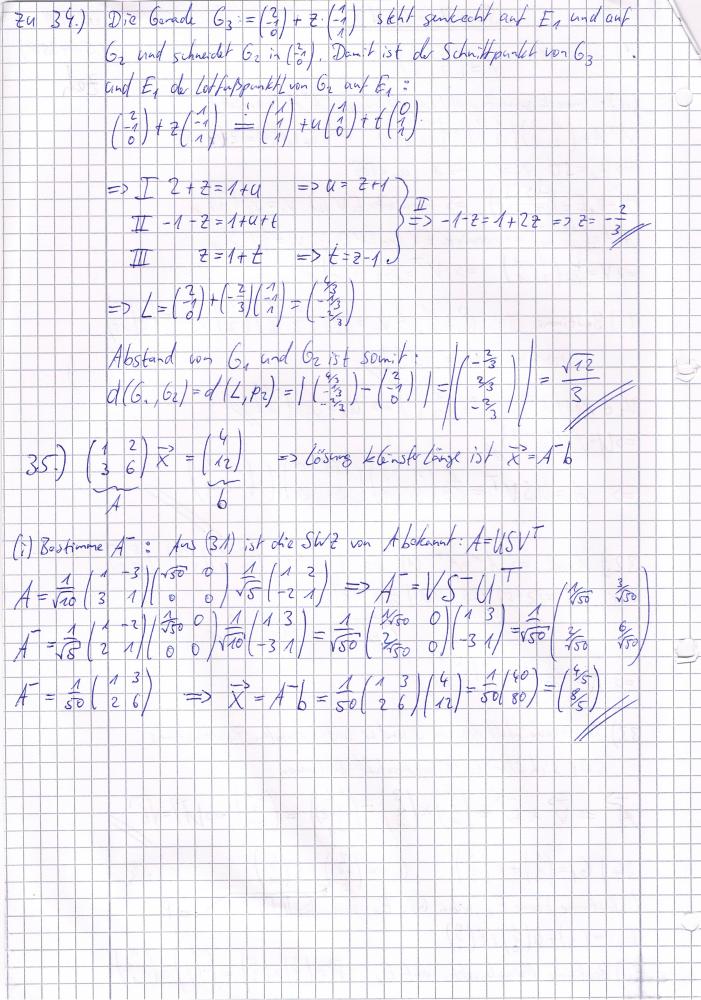 zu 34.) Die Gerade G₃ := (2 -1 0) + z · (1 -1 1) steht senkrecht auf E₁ und auf
G₂ und schneidet G₂ in (2 -1 0). Damit ist der Schnittpunkt von G₃
und E₁ der Lotfußpunkt L von G₂ auf E₁ :
(2 -1 0) + z (1 -1 1) =! (1 1 1) + u (1 1 0) + t (0 1 1)
=> I 2 + z = 1 + u => u = z+1
II -1 - z = 1 + u + t II => -1 - z = 1 + 2z => z = -2/3
III z = 1 + t => t = z - 1
=> L = (2 -1 0) + (-2/3) (1 -1 1) = (4/3 -1/3 -2/3)
Abstand von G₁ und G₂ ist somit:
d(G₁, G₂) = d(L, p₂) = | (4/3 -1/3 -2/3) - (2 -1 0) | = | (-2/3 2/3 -2/3) | = √12/3
35.) (1 2 3 6) x⃗ = (4 12) => Lösung kleinster Länge ist x⃗ = A⁻b
A b
(i) Bestimme A⁻ : Aus (31) ist die SWZ von A bekannt: A = USVᵀ
A = 1/√10 (1 -3 3 1) (√50 0 0 0) 1/√5 (1 2 -2 1) => A⁻ = VS⁻Uᵀ
A⁻ = 1/√5 (1 -2 2 1) (1/√50 0 0 0) 1/√10 (1 3 -3 1) = 1/√50 (1/√50 0 2/√50 0) (1 3 -3 1) = 1/√50 (1/√50 3/√50 2/√50 6/√50)
A⁻ = 1/50 (1 3 2 6) => x⃗ = A⁻b = 1/50 (1 3 2 6) (4 12) = 1/50 (40 80) = (4/5 8/5)